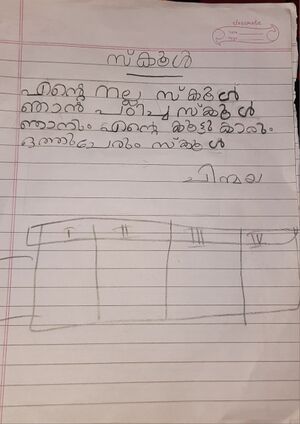 classmate
സ്കൂൾ
എൻ്റെ നല്ല സ്കൂൾ
ഞാൻ പഠിച്ച സ്കൂൾ
ഞാനും എൻ്റെ കൂട്ടുകാരും
ഒത്തുചേരും സ്കൂൾ
I II III IV